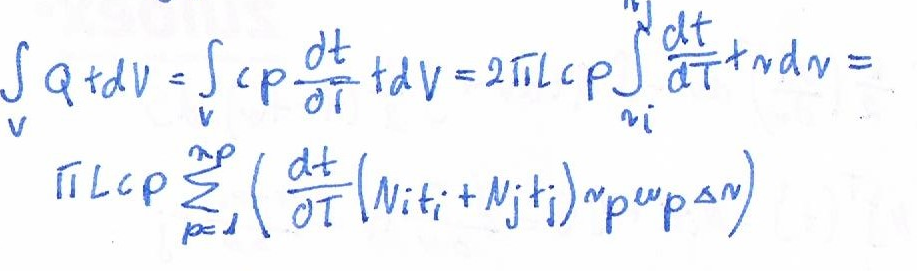 ∫_V Q t dV = ∫_V c ρ ∂t/∂τ t dV = 2πL c ρ ∫_{r_i}^{r_j} dt/dτ t r dr =
πL c ρ ∑_{p=1}^{n_p} ( dt/∂τ (N_i t_i + N_j t_j) r_p w_p Δr )